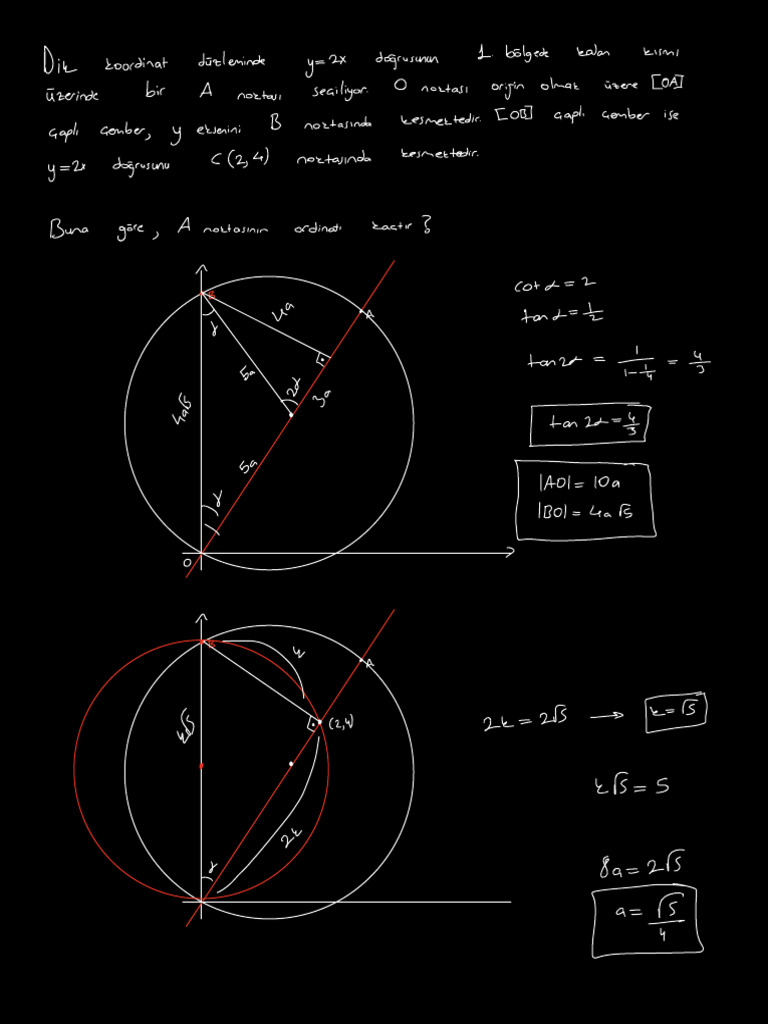 Dik koordinat düzleminde y=2x doğrusunun 1. bölgede kalan kısmı
üzerinde bir A noktası seçiliyor. O noktası origin olmak üzere [OA]
çaplı çember, y eksenini B noktasında kesmektedir. [OB] çaplı çember ise
y=2x doğrusunu C(2,4) noktasında kesmektedir.
Buna göre, A noktasının ordinatı kaçtır?
B
A
4a
α
5a
2α
3a
4a√5
5a
α
O
cot α = 2
tan α = 1/2
tan2α = 1/(1-1/4) = 4/3
tan 2α = 4/3
|AO| = 10a
|BO| = 4a√5
B
k
A
k√5
(2,4)
2k
α
2k = 2√5 → k = √5
k√5 = 5
8a = 2√5
a = √5/4